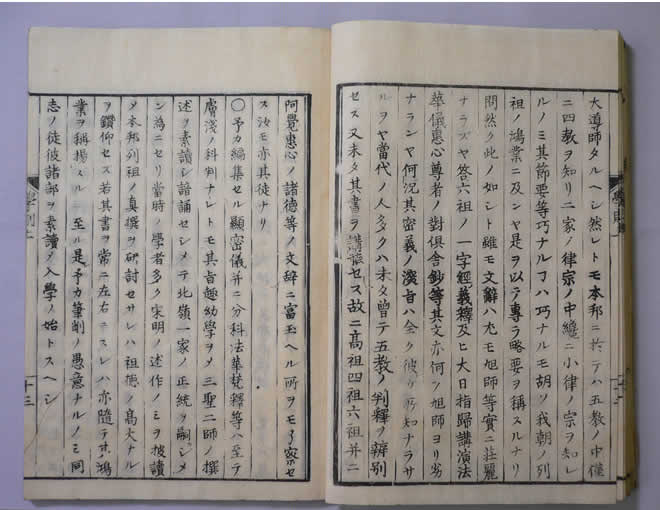 大導師タルヘシ然レトモ本邦ニ於テハ五教ノ中僅
ニ四教ヲ知リ二家ノ律宗ノ中纔ニ小律ノ宗ヲ知レ
ルノミ其節要等巧ナルヿハ巧ナルモ胡ソ我朝ノ列
祖ノ鴻業ニ及ンヤ是ヲ以テ専ラ略要ヲ稱スルナリ
問然ク此ノ如シト雖モ文辭ハ尤モ旭師等實ニ壮麗
ナラズヤ答六祖ノ一字經義釋及ヒ大日指歸講演法
華儀惠心尊者ノ對倶舎鈔等其文亦何ソ旭師ヨリ劣
ナランヤ何況其密義ノ淺旨ハ全ク彼カ所知ナラサ
ルヲヤ當代ノ人多クハ未タ曾テ五教ノ判釋ヲ辨別
セス又未タ其書ヲ講セス故ニ髙祖四祖六祖并ニ
阿覺惠心ノ諸德等ノ文辞ニ富玉ヘル所ヲモ了察セ
ス汝モ亦其徒ナリ
〇予カ編集セル顯密儀并ニ分科法華梵釋等ハ至テ
膚淺ノ科判ナレトモ其旨趣幼學ヲメ三聖二師ノ撰
述ヲ素讀シ諳誦セシメテ北嶺一家ノ正統ヲ嗣シメ
ン為ニセリ當時ノ學者多ク宋明ノ述作ノミヲ披讀
メ本邦列祖ノ真撰ヲ研討セサレハ祖德ノ髙大ナル
ヲ鑽仰セス若其書ヲ常ニ左右ニスレハ亦隨テ其鴻
業ヲ稱揚スルニ至ル是予カ筆削ノ愚意ナルノミ同
志ノ徒彼諸部ヲ素讀メ入學ノ始トスヘシ
學則
十三